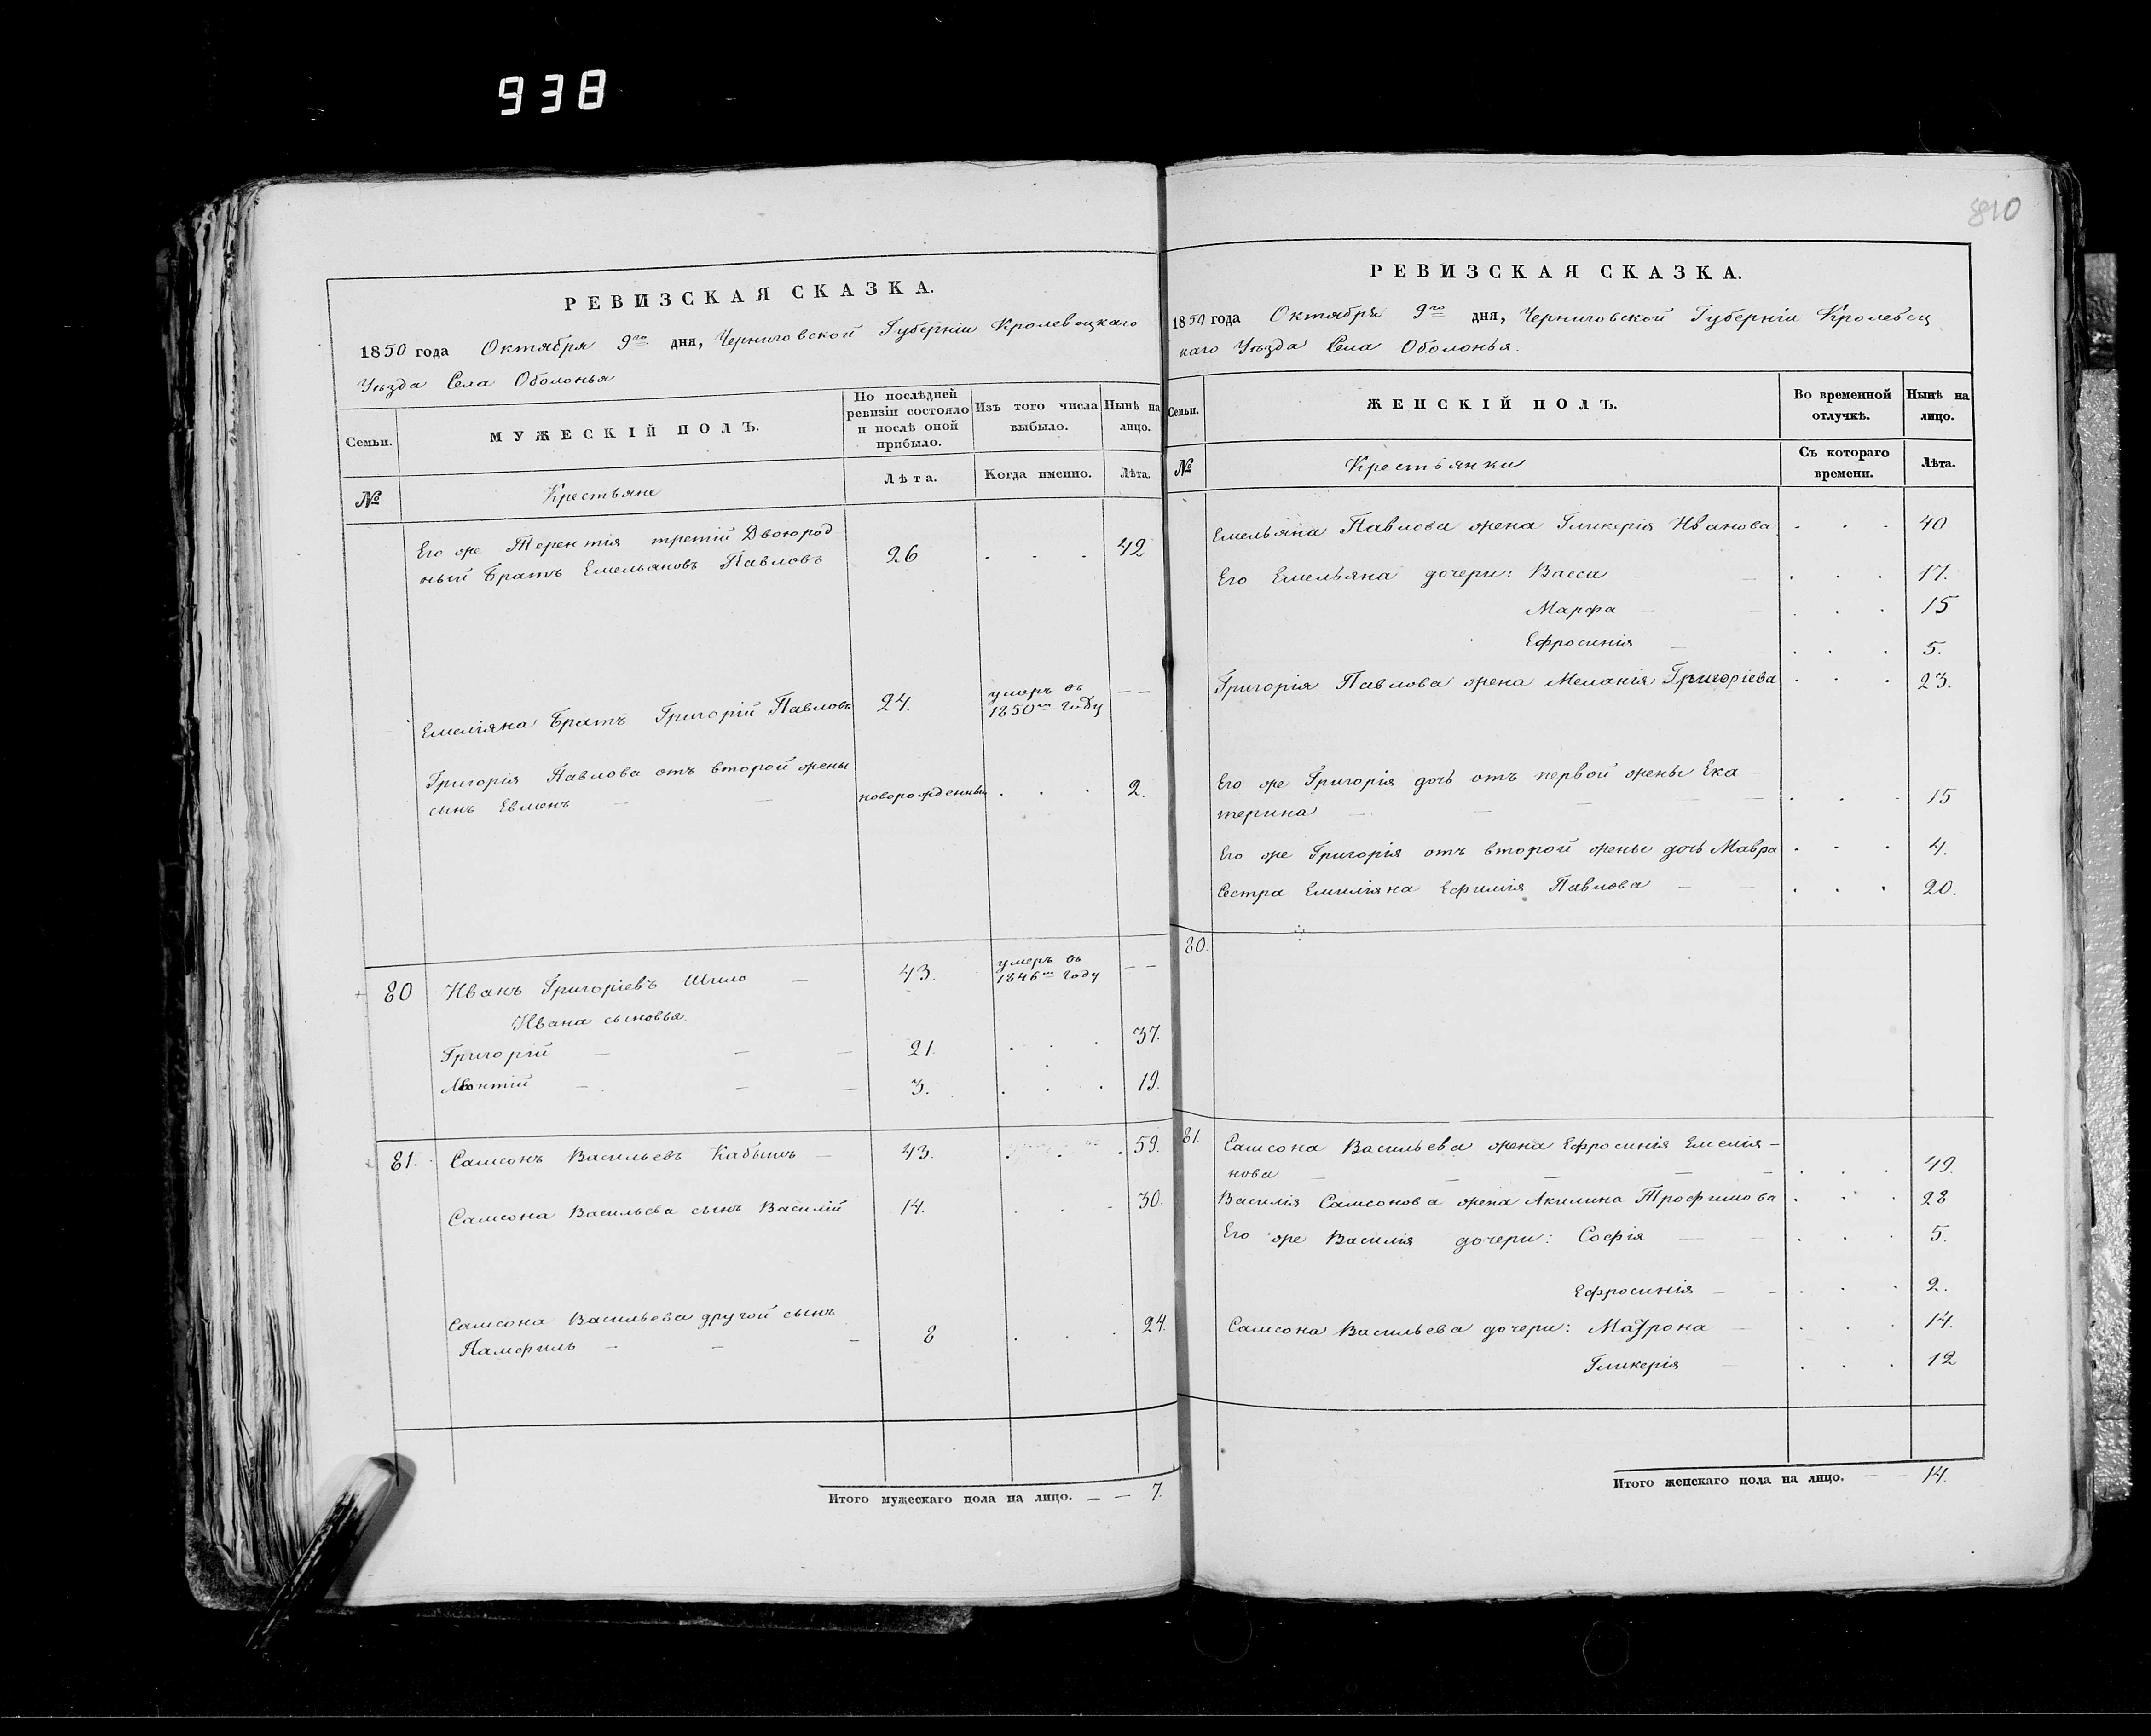 938
810
РЕВИЗСКАЯ СКАЗКА.
1850 года Октября 9го дня, Черниговской Губерніи Кролевецкаго
Уѣзда Села Оболонья
Семьи.
МУЖЕСКІЙ ПОЛЪ.
По послѣдней
ревизіи состояло
и послѣ оной
прибыло.
Изъ того числа
выбыло.
Нынѣ на
лицо.
№
Крестьяне
Лѣта.
Когда именно.
Лѣта.
Его же Терентія третій Двоюрод
ный Братъ Емельяновъ Павловъ 26 . . . 42
Емеліяна Братъ Григорій Павловъ 24. умеръ въ
1850мъ году — —
Григорія Павлова отъ второй жены
сынъ Евменъ — — новорожденный . . . 2.
80 Иванъ Григоріевъ Шило — 43. умеръ въ
1846мъ году — —
Ивана сыновья.
Григорій — — — 21. . . . 37.
— — — 3. . . . 19.
81. Самсонъ Васильевъ — 43. . . . 59.
Самсона Васильева сынъ Василій 14. . . . 30.
Самсона Васильева другой сынъ
Памфилъ — — — 8 . . . 24.
Итого мужескаго пола на лицо. — — 7.
РЕВИЗСКАЯ СКАЗКА.
1850 года Октября 9го дня, Черниговской Губерніи Кролевец
каго Уѣзда Села Оболонья.
Семьи.
ЖЕНСКІЙ ПОЛЪ.
Во временной
отлучкѣ.
Нынѣ на
лицо.
№
Крестьянки
Съ котораго
времени.
Лѣта.
Емельяна Павлова жена Гликерія Иванова . . . 40
Его Емельяна дочери: Васса — — . . . 17.
Марфа — — . . . 15
Ефросинія — . . . 5.
Григорія Павлова жена Меланія Григоріева . . . 23.
Его же Григорія дочь отъ первой жены Ека
терина — — — — . . . 15
Его же Григорія отъ второй жены дочь Мавра . . . 4.
Сестра Емиліяна Ефимія Павлова — — . . . 20.
80.
81. Самсона Васильева жена Ефросинія Емелія-
нова — — — — . . . 49.
Василія Самсонова жена Акилина Трофимова . . . 28
Его же Василія дочери: Софія — — . . . 5.
Ефросинія — — . . . 2.
Самсона Васильева дочери: Матрона — . . . 14.
Гликерія — . . . 12
Итого женскаго пола на лицо. — — 14.